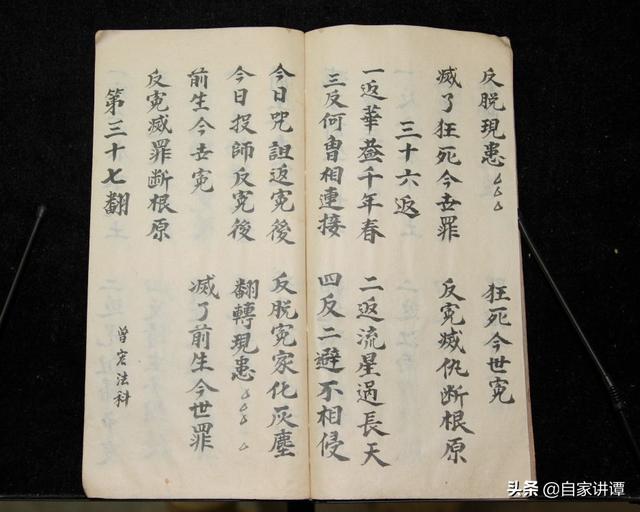 反脱現患 狂死今世寃
滅了狂死今世罪 反寃滅仇断根原
三十六返
一返華葢千年春 二返流星過長天
三反何曹相連接 四反二避不相侵
今日咒詛返寃後 反脱寃家化灰塵
今日投師反寃後 翻轉現患
前生今世寃 滅了前生今世罪
反寃滅罪断根原
第三十七翻 曾宏法科
头条 @自家讲谭